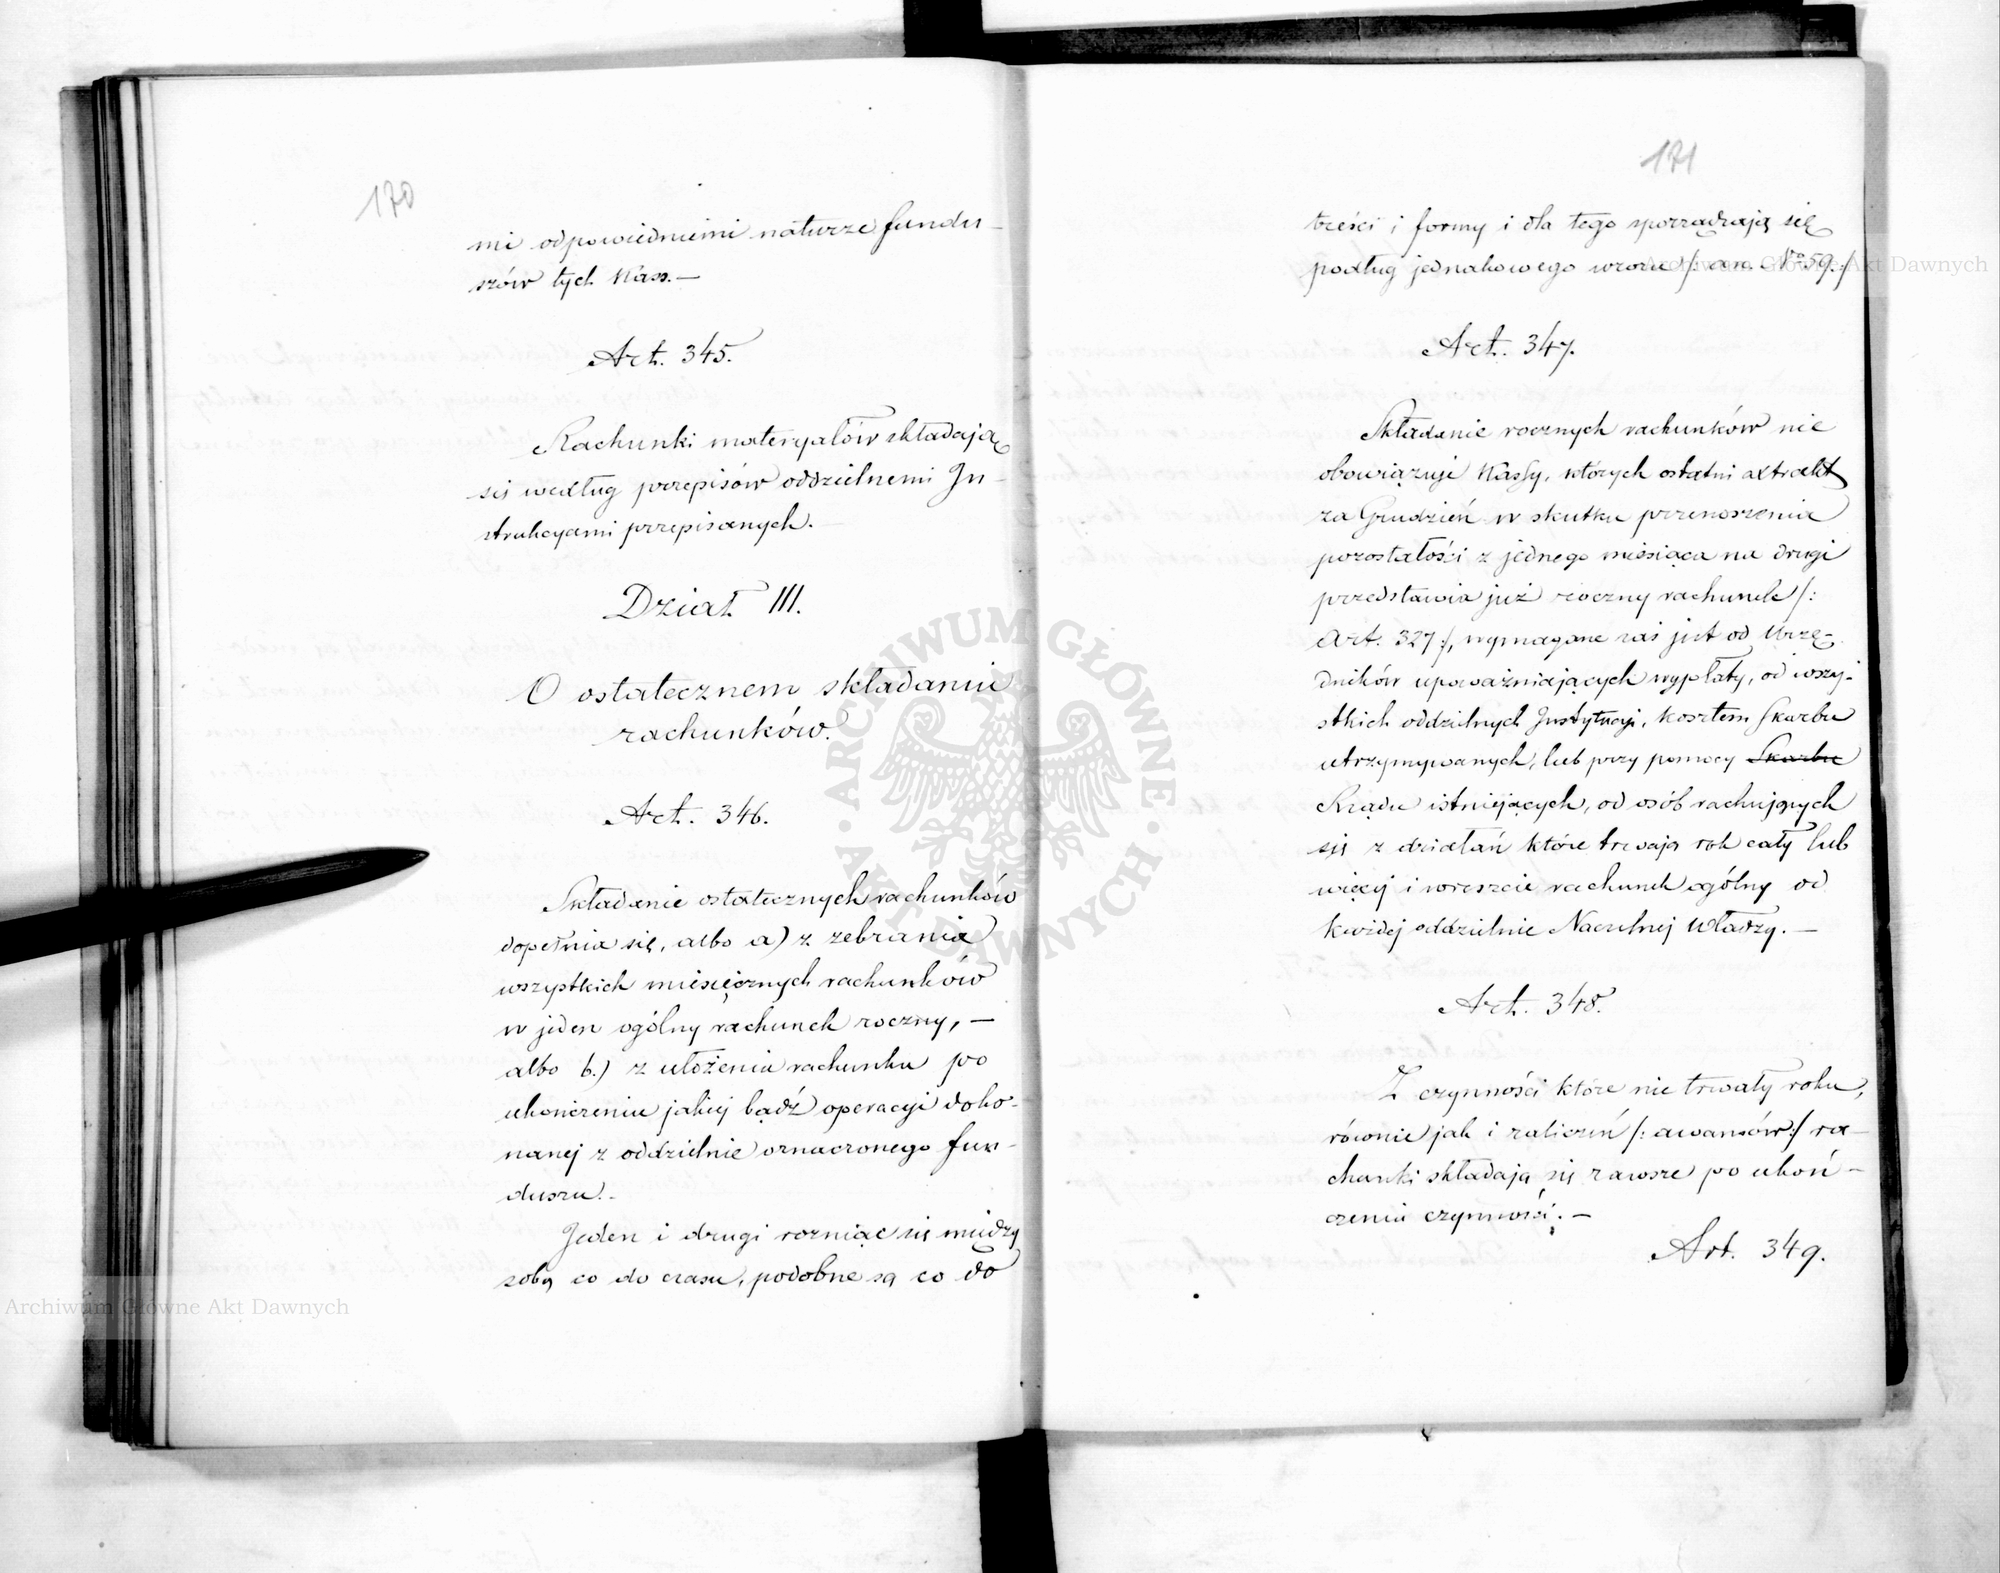 170
mi odpowiedniemi naturze fundu-
szów tych Kass.—
Art. 345.
Rachunki materyałów składają
się według przepisów oddzielnemi In-
strukcyami przepisanych.
Dział III.
O ostatecznem składaniu
rachunków.
Art. 346.
Składanie ostatecznych rachunków
dopełnia się, albo a) z zebrania
wszystkich miesięcznych rachunków
w jeden ogólny rachunek roczny, —
albo b.) z ułożenia rachunku po
ukończeniu jakiej bądź operacyi doko-
nanej z oddzielnie oznaczonego fun-
duszu.-
Jeden i drugi rozniąc się między
sobą co do czasu, podobne są co do
171
treści i formy i dla tego sporządzają się
podług jednakowego wzoru /: an. Nro 59. :/
Art. 347.
Składanie rocznych rachunków nie
obowiązuje Kassy, których ostatni extrakt
za Grudzień w skutku przenoszenia
pozostałości z jednego miesiąca na drugi
przedstawia już roczny rachunek /:
Art. 327 :/, wymagane zaś jest od Urzę-
dników upoważniających wypłaty, od wszy-
stkich oddzielnych Instytucyi, kosztem Skarbu
utrzymywanych, lub przy pomocy Skarbu
Rządu istniejących, od osób rachujących
się z działań które trwają rok cały lub
więcej i wreszcie rachunek ogólny od
każdej oddzielnie Naczelnej Władzy. —
Art. 348.
Z czynności które nie trwały roku,
równie jak i zaliczeń /: awansów :/ ra-
chunki składają się zawsze po ukoń-
czeniu czynności. —
Art. 349.
ARCHIWUM GŁÓWNE AKT DAWNYCH
Archiwum Główne Akt Dawnych
Archiwum Główne Akt Dawnych